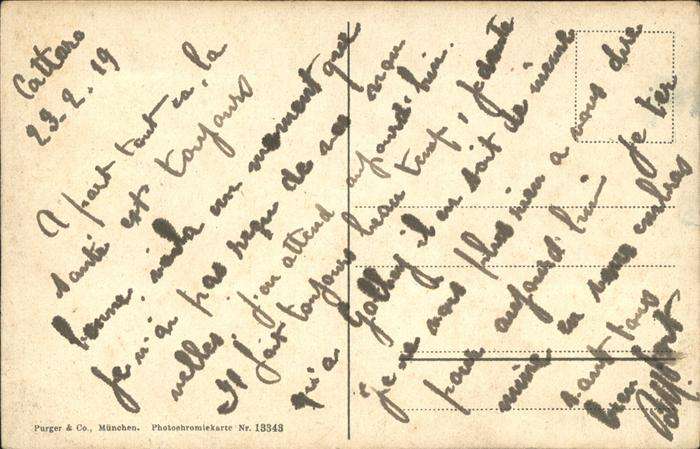 Cattaro
23-2-19
A part tout ca, la
santé est toujours
bonne, voila un moment que
je n'ai pas reçu de vos nou
velles, j'en attend aujourd'hui.
Il fait toujours beau temp,
qu'a il en soit de même
je ne vois plus rien a vous dire
pour aujourd'hui je ter
mine en vous embras
sant tous
bien fort
Purger & Co., München. Photochromiekarte Nr. 13343